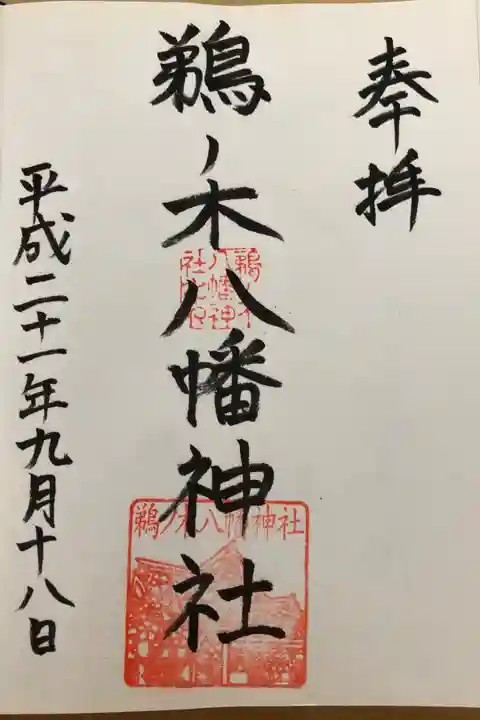 奉拝
鵜ノ木八幡神社
鵜ノ木八幡神社
鵜ノ木八幡神社之印
平成二十一年九月十八日